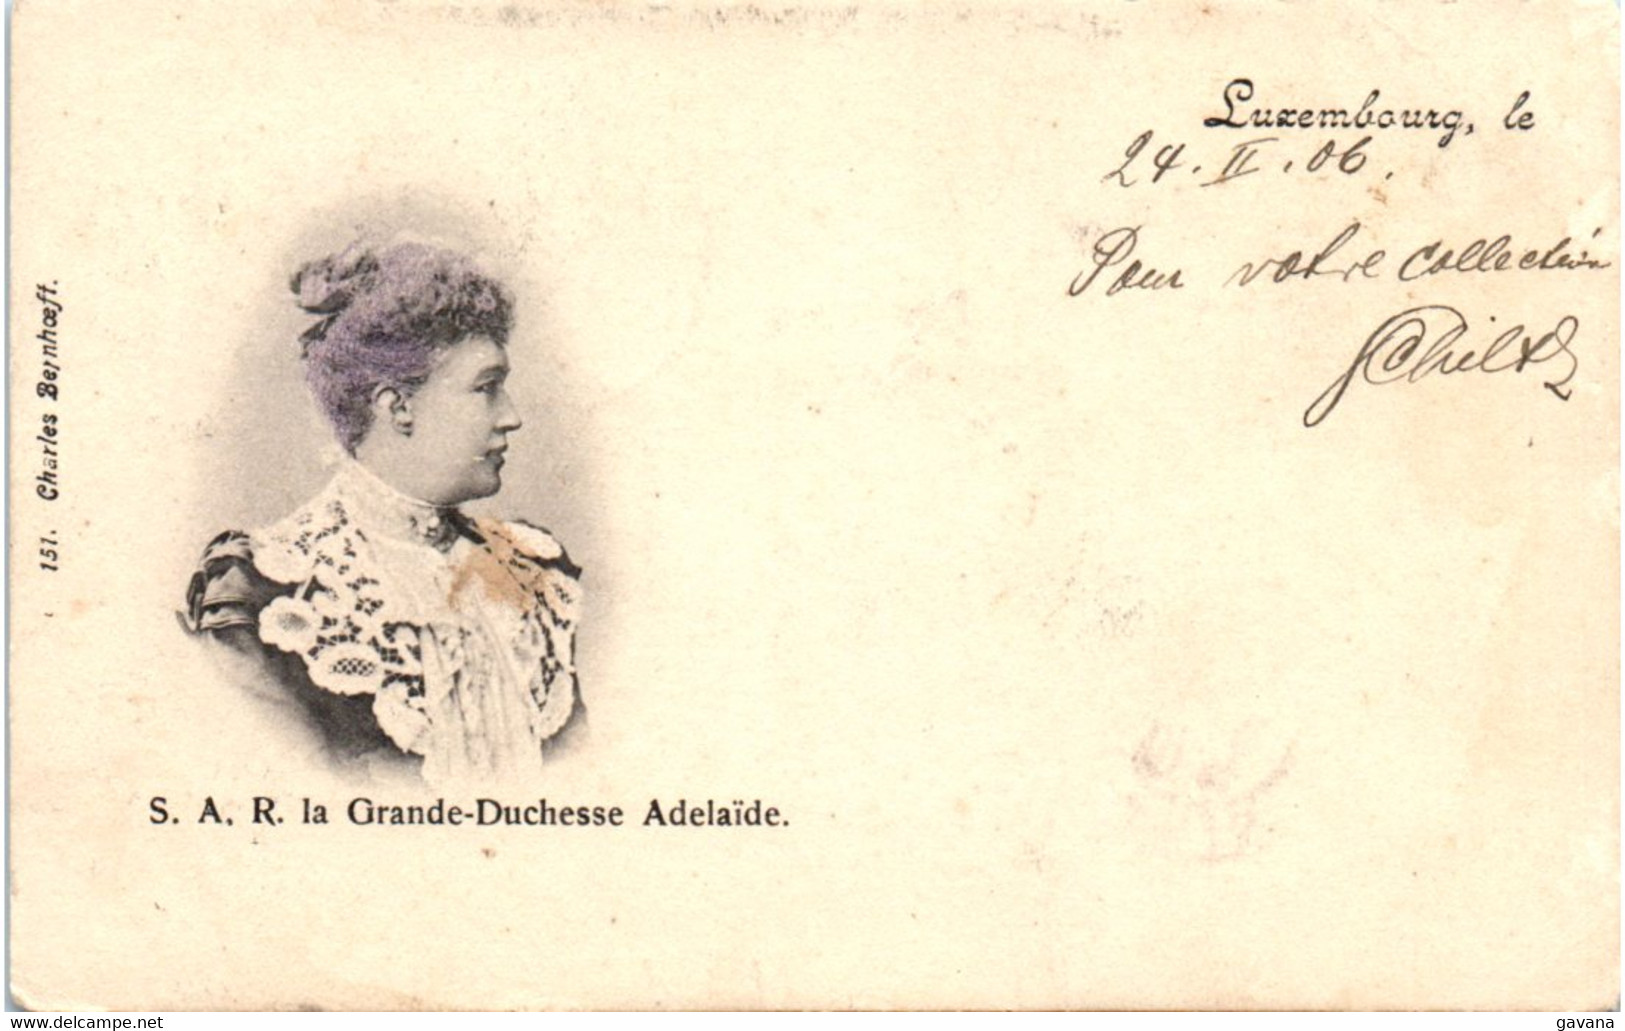 Luxembourg, le
24. II. 06.
Pour votre collection
Schiltz
151. Charles Bernhœft.
S. A. R. la Grande-Duchesse Adelaïde.
www.delcampe.net
gavana